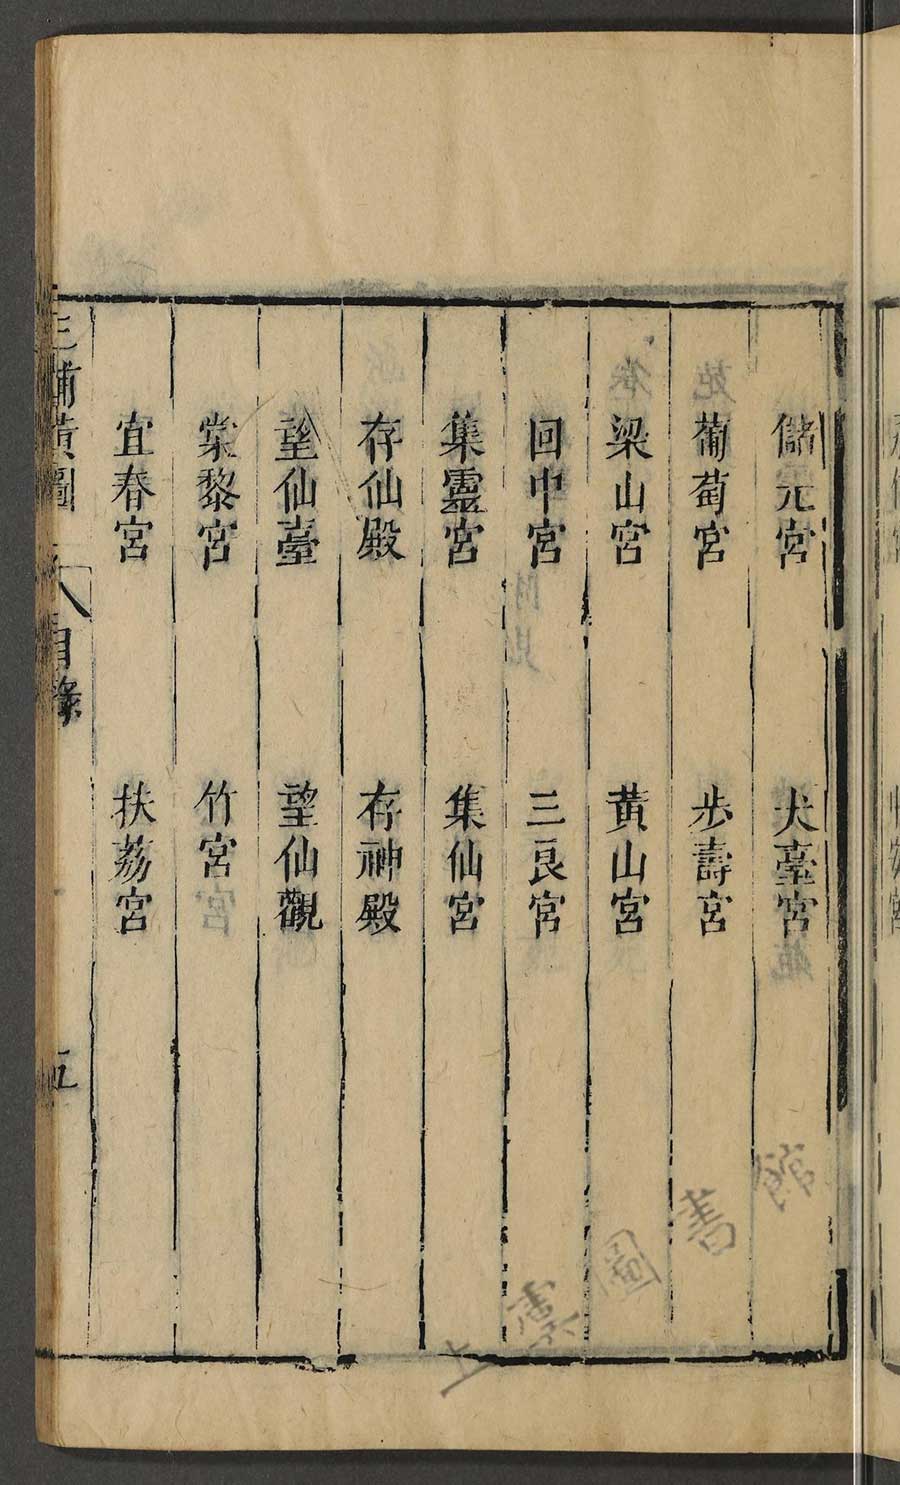 儲元宮 犬臺宮
葡萄宮 步壽宮
梁山宮 黃山宮
回中宮 三良宮
集靈宮 集仙宮
存仙殿 存神殿
望仙臺 望仙觀
棠黎宮 竹宮
宜春宮 扶荔宮
三輔黃圖 目錄 五
上虞圖書館